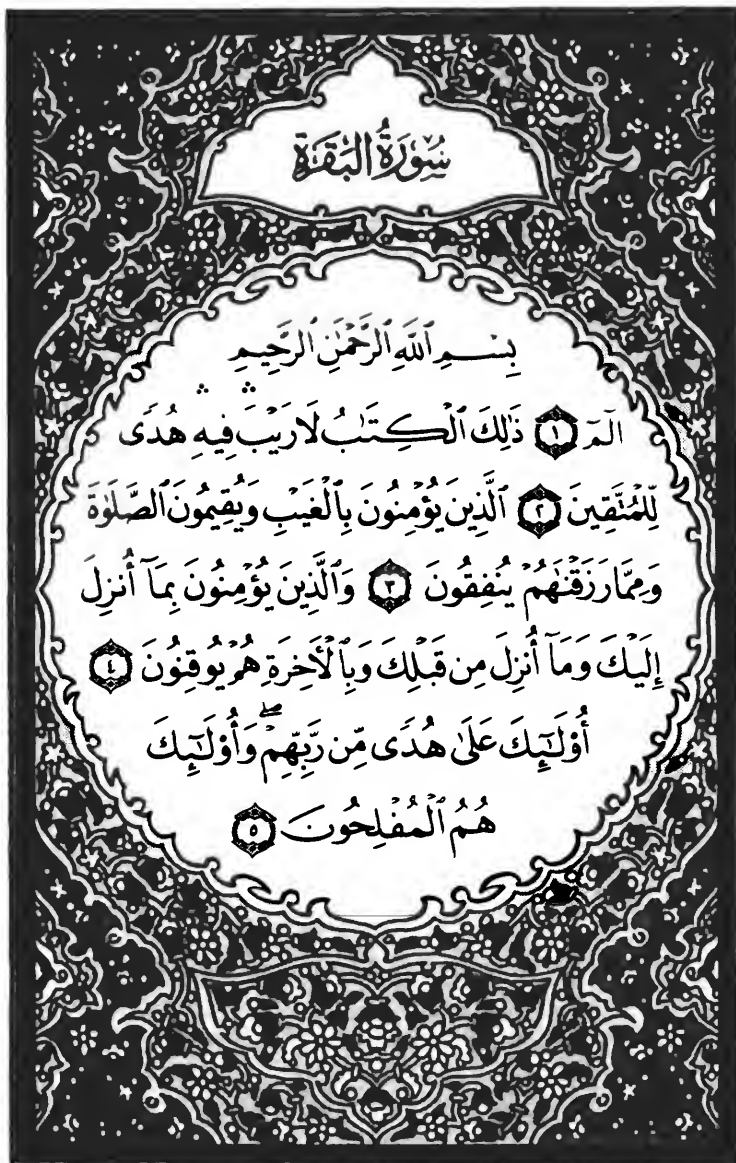 سُورَةُ الْبَقَرَةِ
بِسْمِ ٱللَّهِ ٱلرَّحْمَٰنِ ٱلرَّحِيمِ
الٓمٓ ۝١ ذَٰلِكَ ٱلْكِتَٰبُ لَا رَيْبَ ۛ فِيهِ ۛ هُدًى
لِّلْمُتَّقِينَ ۝٢ ٱلَّذِينَ يُؤْمِنُونَ بِٱلْغَيْبِ وَيُقِيمُونَ ٱلصَّلَوٰةَ
وَمِمَّا رَزَقْنَٰهُمْ يُنفِقُونَ ۝٣ وَٱلَّذِينَ يُؤْمِنُونَ بِمَآ أُنزِلَ
إِلَيْكَ وَمَآ أُنزِلَ مِن قَبْلِكَ وَبِٱلْأَخِرَةِ هُمْ يُوقِنُونَ ۝٤
أُو۟لَٰٓئِكَ عَلَىٰ هُدًى مِّن رَّبِّهِمْ ۖ وَأُو۟لَٰٓئِكَ
هُمُ ٱلْمُفْلِحُونَ ۝٥